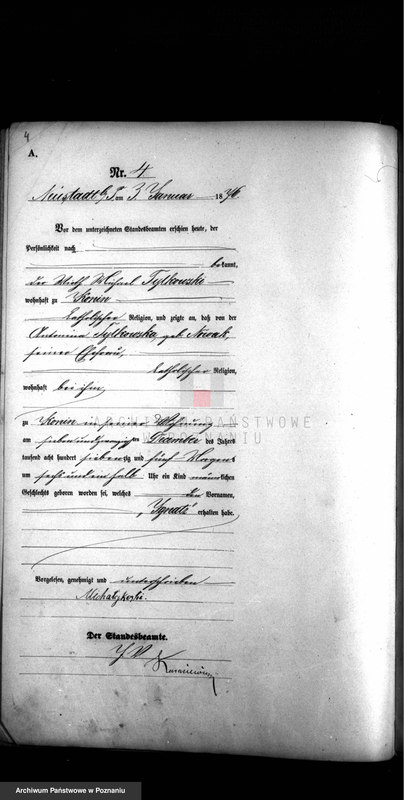 4
A.
Nr. 4
Neustadt b/P am 3. Januar 1876
Vor dem unterzeichneten Standesbeamten erschien heute, der
Persönlichkeit nach
bekannt,
der Wirth Michael Tylkowski
wohnhaft zu Konin
katholischer Religion, und zeigte an, daß von der
Antonina Tylkowska, geb. Nowak,
seiner Ehefrau,
katholischer Religion,
wohnhaft bei ihm,
zu Konin in seiner Wohnung
am sieben und zwanzigsten December des Jahres
tausend acht hundert siebenzig und fünf Morgens
um sechs und ein halb Uhr ein Kind männlichen
Geschlechts geboren worden sei, welches den Vornamen,
"Ignatz" erhalten habe.
Vorgelesen, genehmigt und unterschrieben
Der Standesbeamte.
ARCHIWUM PAŃSTWOWE
W POZNANIU
Archiwum Państwowe w Poznaniu